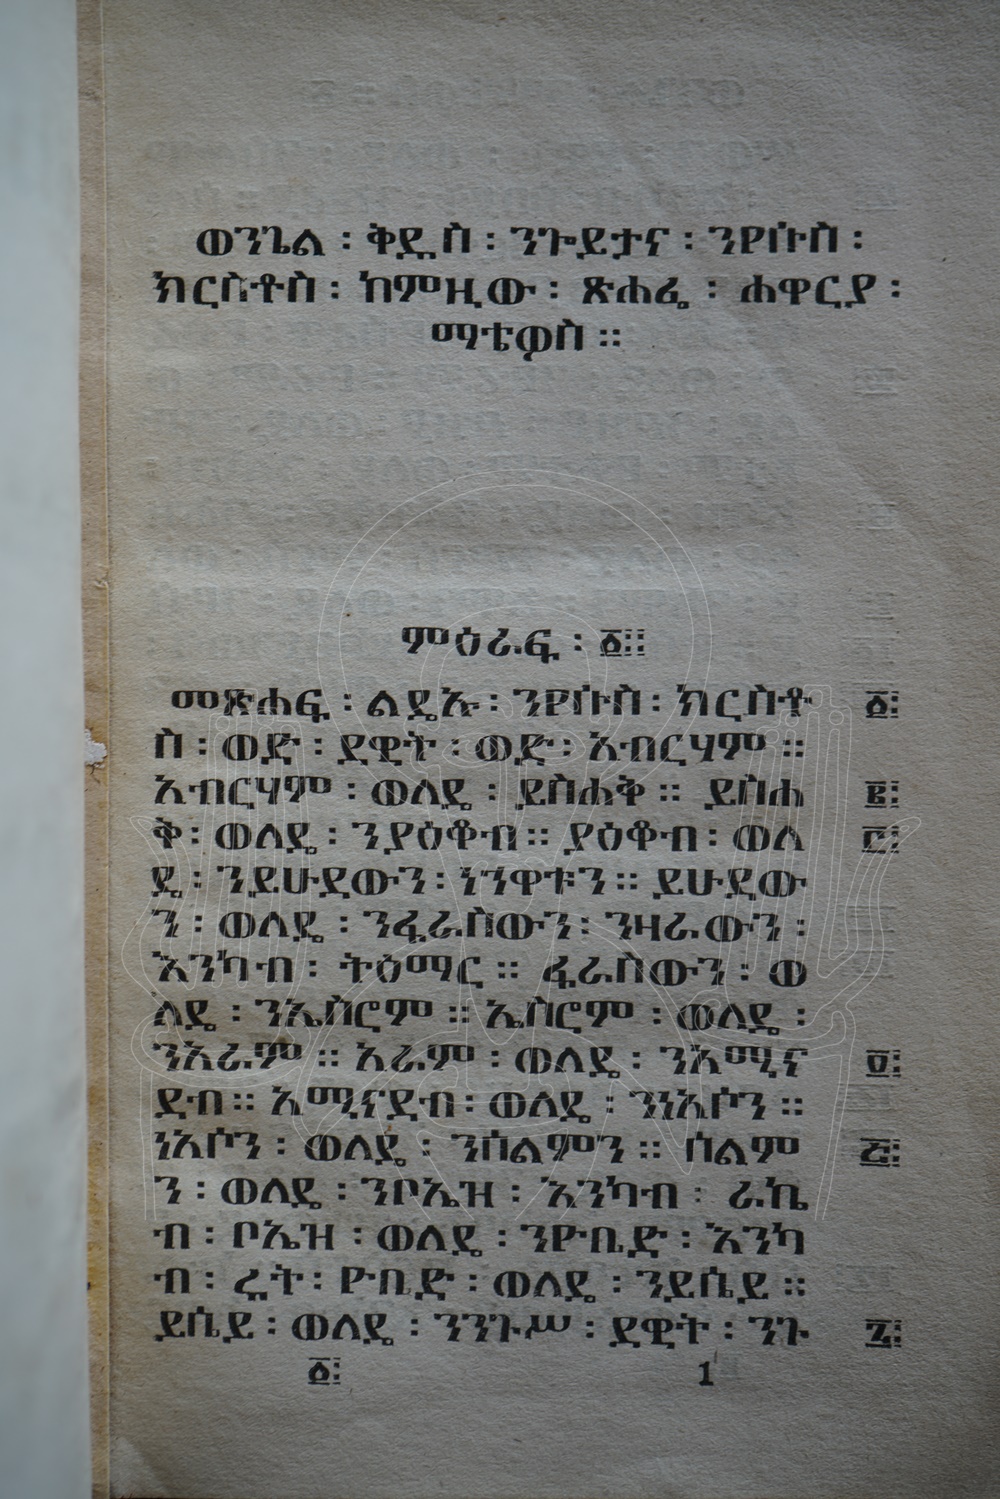 ወንጌል ፡ ቅዱስ ፡ ንጐይታና ፡ ንየሱስ ፡
ክርስቶስ ፡ ከምዚው ፡ ጽሐፌ ፡ ሐዋርያ ፡
ማቴዎስ ።
ምዕራፍ ፡ ፩፡፡
መጽሐፍ ፡ ልደኡ ፡ ንየሱስ ፡ ክርስቶ ፩፡
ስ ፡ ወድ ፡ ዳዊት ፡ ወድ ፡ አብርሃም ።
አብርሃም ፡ ወለዴ ፡ ይስሐቅ ። ይስሐ ፪፡
ቅ ፡ ወለዴ ፡ ንያዕቆብ ። ያዕቆብ ፡ ወለ ፫፡
ዴ ፡ ንይሁዳውን ፡ ነኀዋቱን ። ይሁዳው
ን ፡ ወለዴ ፡ ንፋራስውን ፡ ንዛራውን ፡
እንካብ ፡ ትዕማር ። ፋራስውን ፡ ወ
ለዴ ፡ ንኤስሮም ። ኤስሮም ፡ ወለዴ ፡
ንአራም ። አራም ፡ ወለዴ ፡ ንአሚና ፬፡
ዳብ ። አሚናዳብ ፡ ወለዴ ፡ ንነአሶን ።
ነአሶን ፡ ወለዴ ፡ ንሰልምን ። ሰልም ፭፡
ን ፡ ወለዴ ፡ ንቦኤዝ ፡ እንካብ ፡ ራኬ
ብ ፡ ቦኤዝ ፡ ወለዴ ፡ ንዮቢድ ፡ እንካ
ብ ፡ ሩት ፡ ዮቢድ ፡ ወለዴ ፡ ንይሴይ ።
ይሴይ ፡ ወለዴ ፡ ንንጉሥ ፡ ዳዊት ፡ ንጉ ፮፡
፩፡ 1